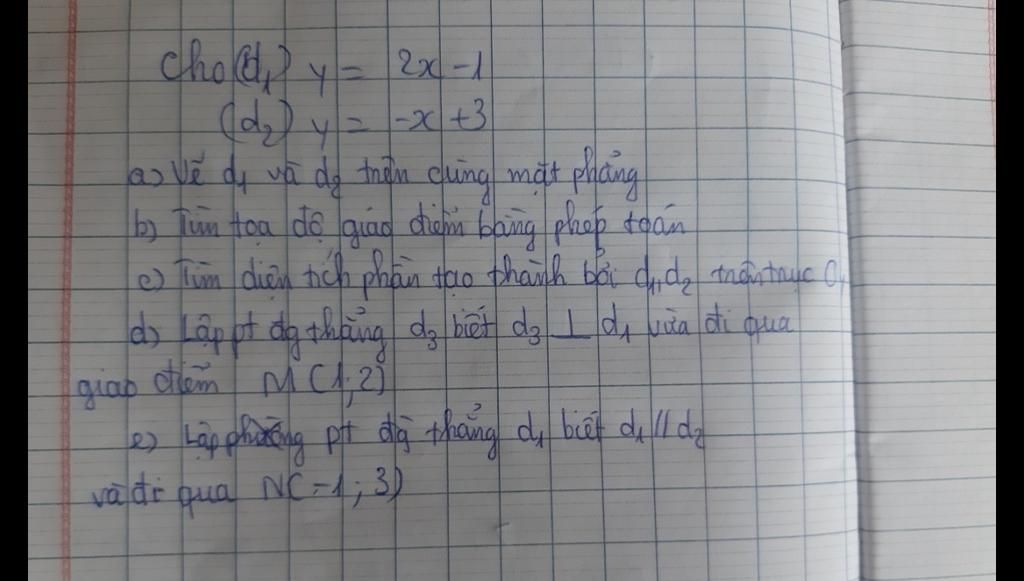 Cho (d₁) y = 2x - 1
(d₂) y = -x + 3
a) Vẽ d₁ và d₂ trên cùng mặt phẳng
b) Tìm tọa độ giao điểm bằng phép toán
c) Tìm diện tích phần tạo thành bởi d₁, d₂ trên trục
d) Lập pt đg thẳng d₃ biết d₃ ⊥ d₁ vừa đi qua
giao điểm M (1; 2)
e) Lập pt đg thẳng d₁ biết d₁ // d₂
và đi qua N(-1; 3)